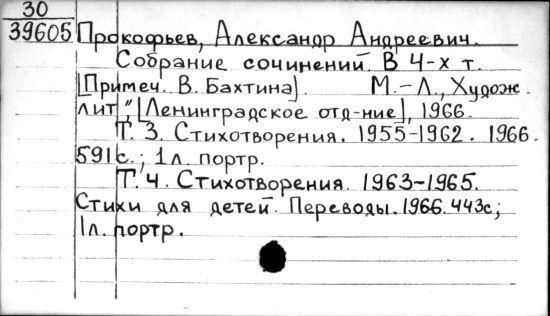 30
39605 Прокофьев, Александр Андреевич.
Собрание сочинений. В 4-х т.
[Примеч. В. Бахтина]. М.-Л., Худож.
лит", [Ленинградское отд-ние], 1966.
Т. 3. Стихотворения. 1955-1962. 1966.
591 с.; 1 л. портр.
Т. 4. Стихотворения. 1963-1965.
Стихи для детей. Переводы. 1966. 443с;
1л. портр.